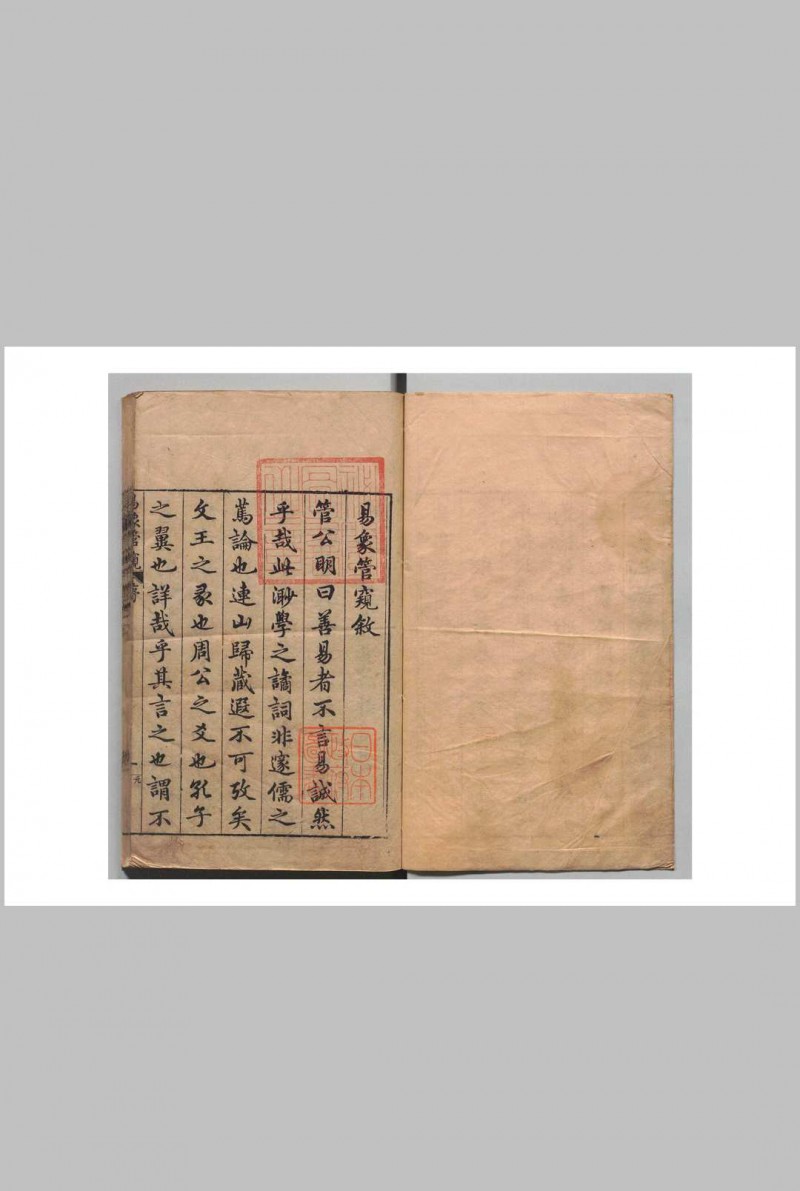 易象管窺敘
管公明曰善易者不言易誠然
乎哉此渺學之譎詞非邃儒之
篤論也連山歸藏遐不可攷矣
文王之彖也周公之爻也孔子
之翼也詳哉乎其言之也謂不
易象管窺 序
日本